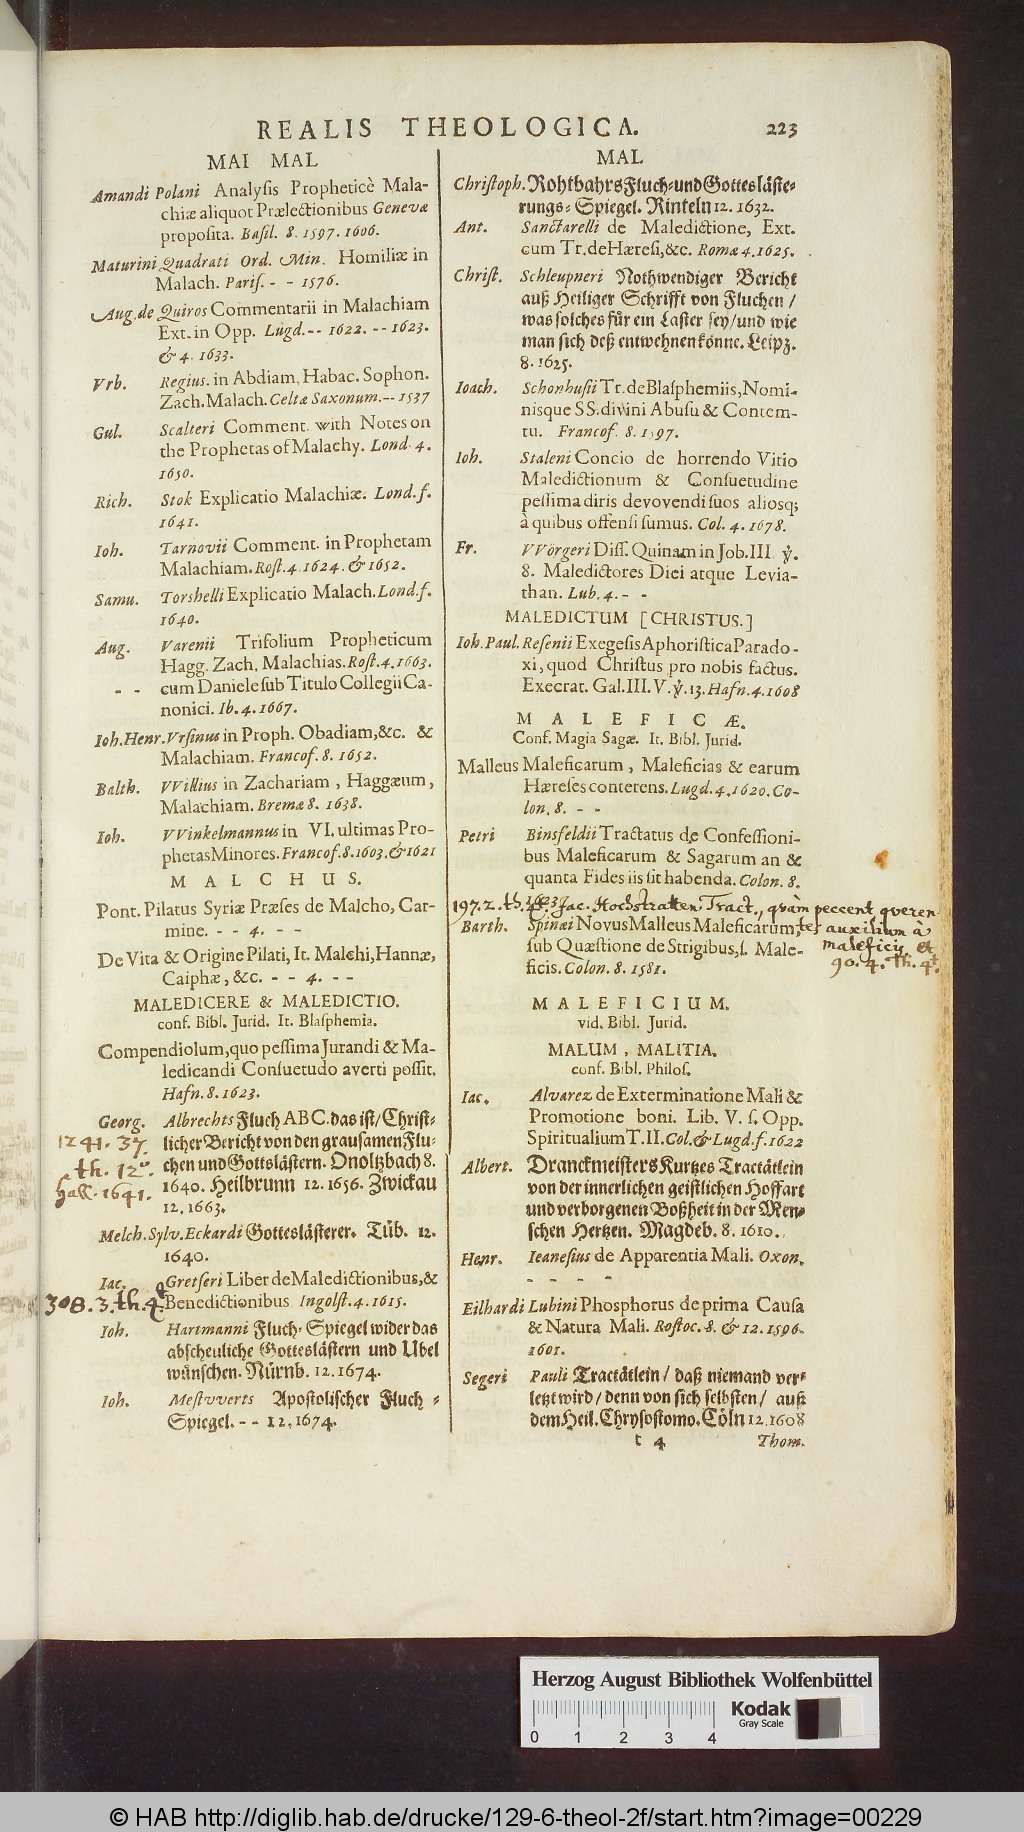 REALIS THEOLOGICA. 223
MAI MAL
Amandi Polani Analyſis Propheticè Mala-
chiæ aliquot Prælectionibus Genevæ
propoſita. Baſil. 8. 1597. 1606.
Maturini Quadrati Ord. Min. Homiliæ in
Malach. Pariſ. - - 1576.
Aug. de Quiros Commentarii in Malachiam
Ext. in Opp. Lugd. -- 1622. -- 1623.
& 4. 1633.
Vrb. Regius. in Abdiam, Habac. Sophon.
Zach. Malach. Celtæ Saxonum. -- 1537
Gul. Scalteri Comment. with Notes on
the Prophetas of Malachy. Lond. 4.
1650.
Rich. Stok Explicatio Malachiæ. Lond. f.
1641.
Ioh. Tarnovii Comment. in Prophetam
Malachiam. Roſt. 4. 1624. & 1652.
Samu. Torshelli Explicatio Malach. Lond. f.
1640.
Aug. Varenii Trifolium Propheticum
Hagg. Zach. Malachias. Roſt. 4. 1663.
- - cum Daniele ſub Titulo Collegii Ca-
nonici. Ib. 4. 1667.
Ioh. Henr. Vrſinus in Proph. Obadiam, &c. &
Malachiam. Francof. 8. 1652.
Balth. VVillius in Zachariam, Haggæum,
Malachiam. Bremæ 8. 1638.
Ioh. VVinkelmannus in VI. ultimas Pro-
phetas Minores. Francof. 8. 1603. & 1621
MALCHUS.
Pont. Pilatus Syriæ Præſes de Malcho, Car-
mine. - - 4. - -
De Vita & Origine Pilati, It. Malchi, Hannæ,
Caiphæ, &c. - - 4. - -
MALEDICERE & MALEDICTIO.
conf. Bibl. Jurid. It. Blaſphemia.
Compendiolum, quo peſſima Jurandi & Ma-
ledicandi Conſuetudo averti poſſit.
Hafn. 8. 1623.
Georg. Albrechts Fluch ABC. das iſt/ Chriſt-
1241. 37. licher Bericht von den grauſamen Flu-
th. 12º. chen und Gottsläſtern. Onoltzbach 8.
Hall. 1641. 1640. Heilbrunn 12. 1656. Zwickau
12. 1663.
Melch. Sylv. Eckardi Gottesläſterer. Tüb. 12.
1640.
Iac. Gretſeri Liber de Maledictionibus, &
308. 3. th. 4º. Benedictionibus Ingolſt. 4. 1615.
Ioh. Hartmanni Fluch-Spiegel wider das
abſcheuliche Gottesläſtern und Ubel
wünſchen. Nürnb. 12. 1674.
Ioh. Meſtvverts Apoſtoliſcher Fluch-
Spiegel. - - 12. 1674.
MAL
Chriſtoph. Rohtbahrs Fluch-und Gottesläſte-
rungs-Spiegel. Rinteln 12. 1632.
Ant. Sanctarelli de Maledictione, Ext.
cum Tr. de Hæreſi, &c. Romæ 4. 1625.
Chriſt. Schleupneri Nothwendiger Bericht
auß Heiliger Schrifft von Fluchen/
was ſolches für ein Laſter ſey/und wie
man ſich deß entwehnen könne. Leipz.
8. 1625.
Ioach. Schonhuſii Tr. de Blaſphemiis, Nomi-
nisque SS. divini Abuſu & Contem-
tu. Francof. 8. 1597.
Ioh. Staleni Concio de horrendo Vitio
Maledictionum & Conſuetudine
peſſima diris devovendi ſuos alioſq;
à quibus offenſi ſumus. Col. 4. 1678.
Fr. VVörgeri Diſſ. Quinam in Job. III. ℣.
8. Maledictores Diei atque Levia-
than. Lub. 4. - -
MALEDICTUM [CHRISTUS.]
Ioh. Paul. Reſenii Exegeſis Aphoriſtica Parado-
xi, quod Chriſtus pro nobis factus.
Execrat. Gal. III. V. ℣. 13. Hafn. 4. 1608
MALEFICÆ.
Conf. Magia Sagæ. It. Bibl. Jurid.
Malleus Maleficarum, Maleficias & earum
Hæreſes conterens. Lugd. 4. 1620. Co-
lon. 8. - -
Petri Binsfeldii Tractatus de Confeſſioni-
bus Maleficarum & Sagarum an &
quanta Fides iis ſit habenda. Colon. 8.
1623.
197. 2. th. 4º. Jac. Hochstratten Tract., quàm peccent queren
tes auxilium à
maleficij et
90. 4. th. 4º.
Barth. Spinæi Novus Malleus Maleficarum,
ſub Quæſtione de Strigibus, ſ. Male-
ficis. Colon. 8. 1581.
MALEFICIUM.
vid. Bibl. Jurid.
MALUM, MALITIA.
conf. Bibl. Philoſ.
Iac. Alvarez de Exterminatione Mali &
Promotione boni. Lib. V. ſ. Opp.
Spiritualium T. II. Col. & Lugd. f. 1622
Albert. Dranckmeiſters Kurtzes Tractätlein
von der innerlichen geiſtlichen Hoffart
und verborgenen Boßheit in der Men-
ſchen Hertzen. Magdeb. 8. 1610.
Henr. Ieaneſius de Apparentia Mali. Oxon.
- - - -
Eilhardi Lubini Phosphorus de prima Cauſa
& Natura Mali. Roſtoc. 8. & 12. 1596.
1601.
Segeri Pauli Tractätlein/ daß niemand ver-
letzt wird/ denn von ſich ſelbſten/ auß
dem Heil. Chryſoſtomo. Cöln 12. 1608
t 4 Thom.
Herzog August Bibliothek Wolfenbüttel
0 1 2 3 4
Kodak
Gray Scale
© HAB http://diglib.hab.de/drucke/129-6-theol-2f/start.htm?image=00229